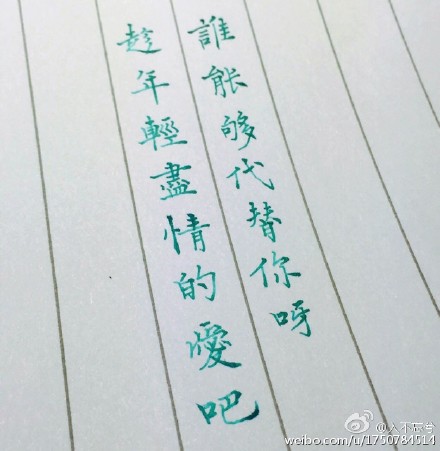 誰能够代替你呀
趁年輕盡情的愛吧
weibo.com/u/1750784514